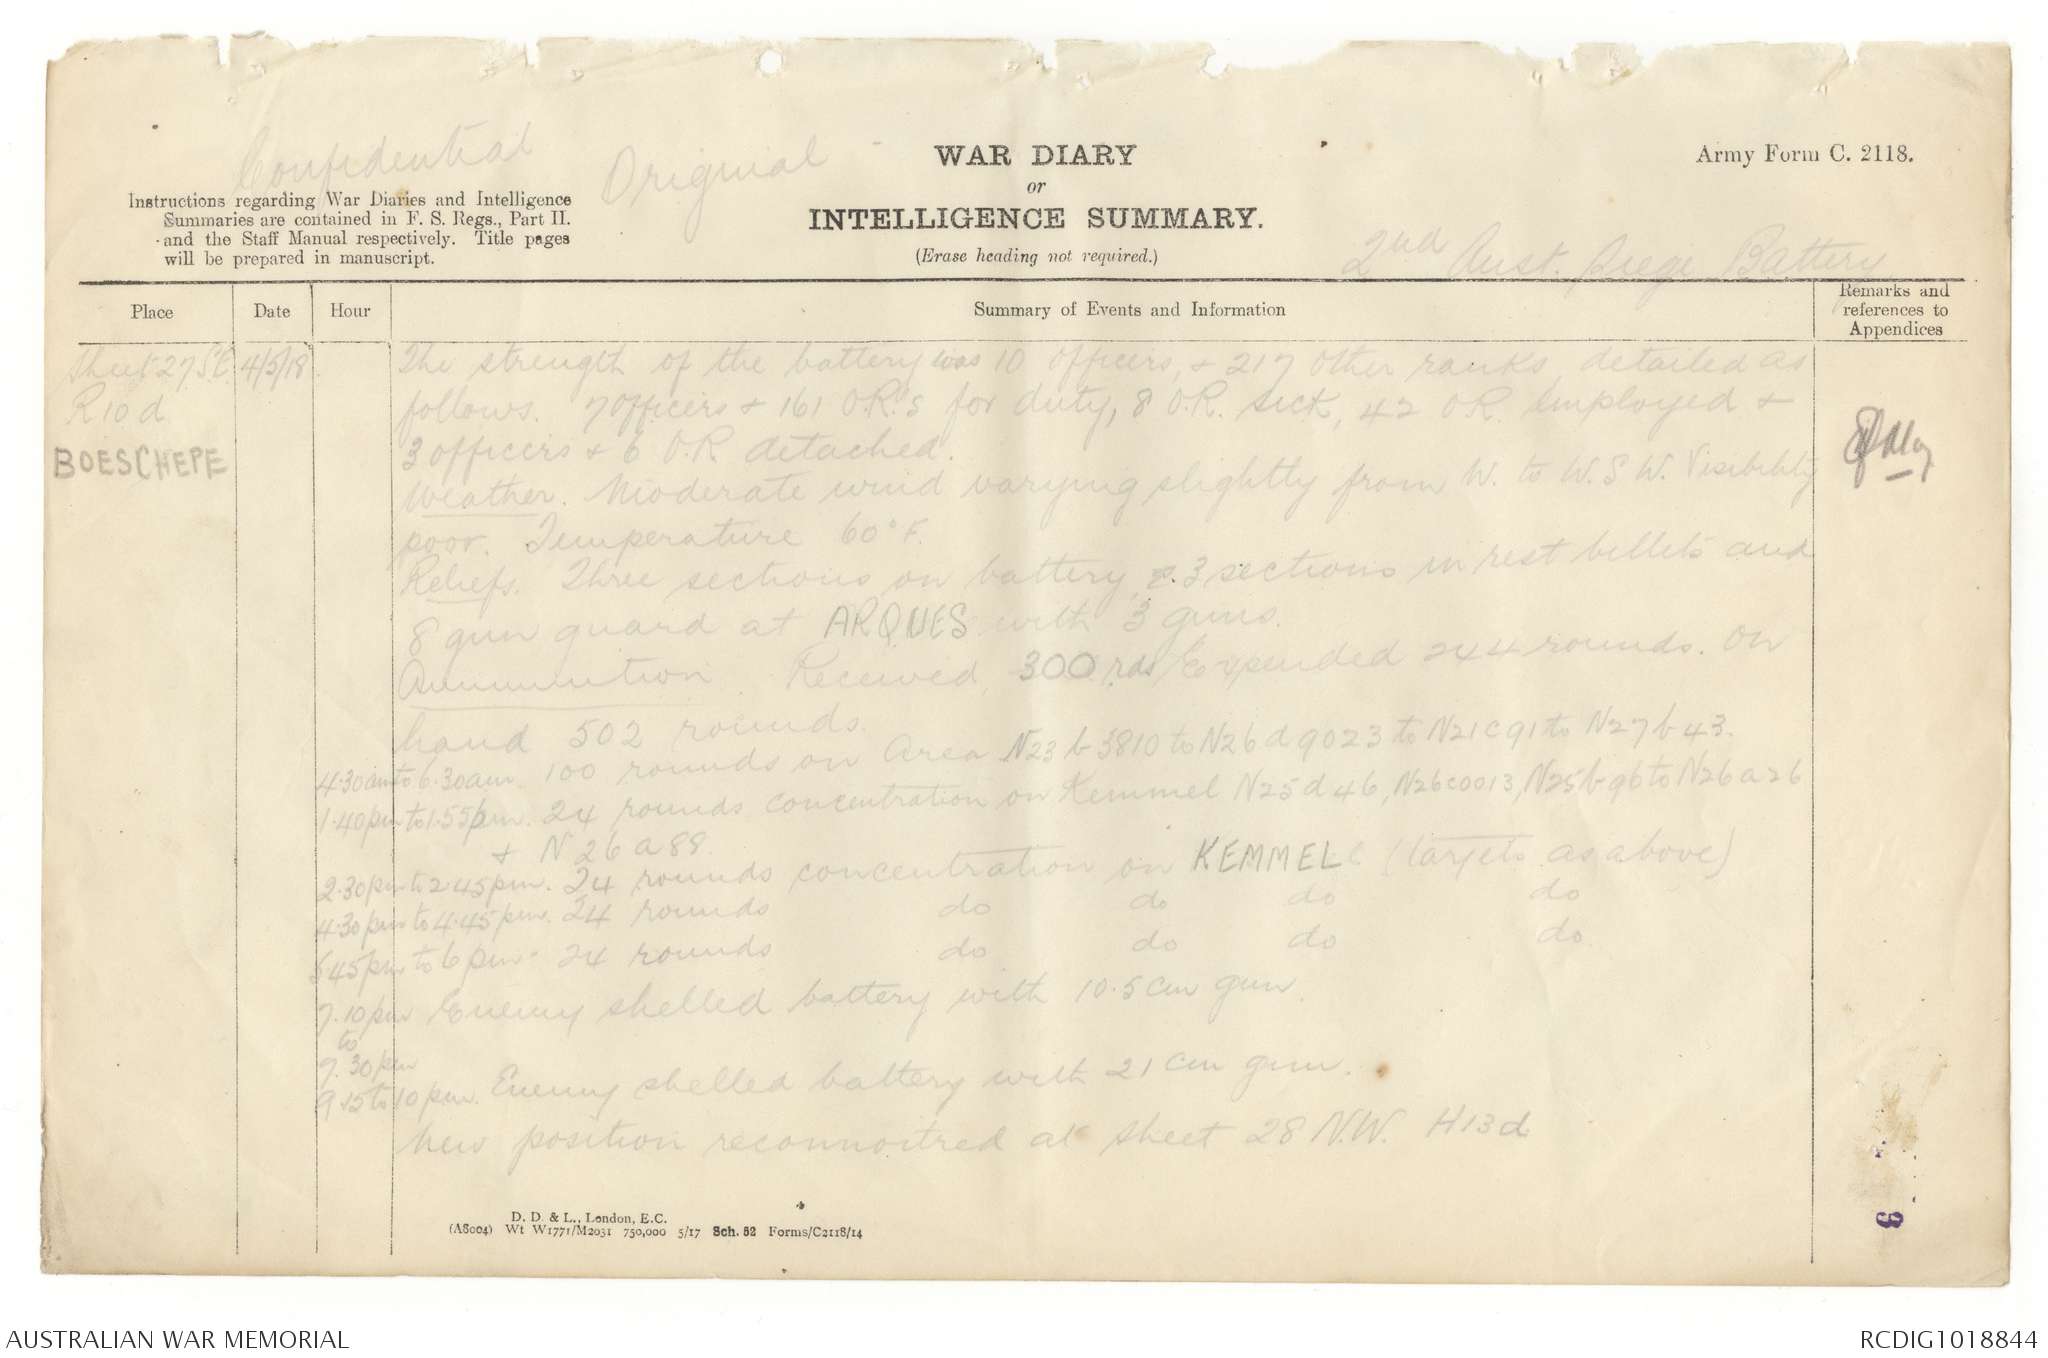 Confidential
Original
WAR DIARY
or
INTELLIGENCE SUMMARY.
(Erase heading not required.)
Army Form C. 2118.
Instructions regarding War Diaries and Intelligence
Summaries are contained in F. S. Regs., Part II.
and the Staff Manual respectively. Title pages
will be prepared in manuscript.
2nd Aust. Siege Battery
Place Date Hour Summary of Events and Information Remarks and references to Appendices
Sheet 27 S.E. 4/5/18. The strength of the battery was 10 officers, & 217 other ranks, detailed as
R10d follows. 7 officers & 161 O.R.'s for duty, 8 O.R. sick, 42 O.R. employed &
BOESCHEPE 3 officers & 6 O.R. detached.
Weather. Moderate wind varying slightly from W. to W.S.W. Visibility
poor. Temperature 60° F.
Reliefs. Three sections on battery, 3 sections in rest billets and
8 gun guard at ARQUES with 3 guns.
Ammunition. Received 300 rds Expended 244 rounds. On
hand 502 rounds.
4.30am to 6.30am. 100 rounds on Area N23 b 3810 to N26 d 9023 to N21 c 91 to N27 b 43.
1.40pm to 1.55pm. 24 rounds concentration on Kemmel N25 d 46, N26c0013, N25 b 96 to N26 a 26
& N 26 a 88.
2.30pm to 2.45pm. 24 rounds concentration on KEMMEL (targets as above)
4.30pm to 4.45pm. 24 rounds do do do do
5.45pm to 6pm. 24 rounds do do do do
7.10pm Enemy shelled battery with 10.5 cm gun.
to
7.30pm
9.15 to 10pm. Enemy shelled battery with 21 cm gun.
New position reconnoitred at sheet 28 N.W. H13d
3
D. D. & L., London, E.C.
(A8004) Wt W1771/M2031 750,000 5/17 Sch. 52 Forms/C2118/14
AUSTRALIAN WAR MEMORIAL
RCDIG1018844